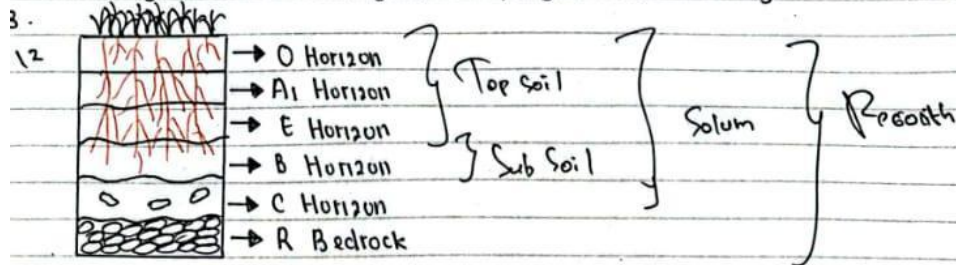 3.
12
→ O Horizon
→ A1 Horizon
→ E Horizon
→ B Horizon
→ C Horizon
→ R Bedrock
Top soil
Sub Soil
Solum